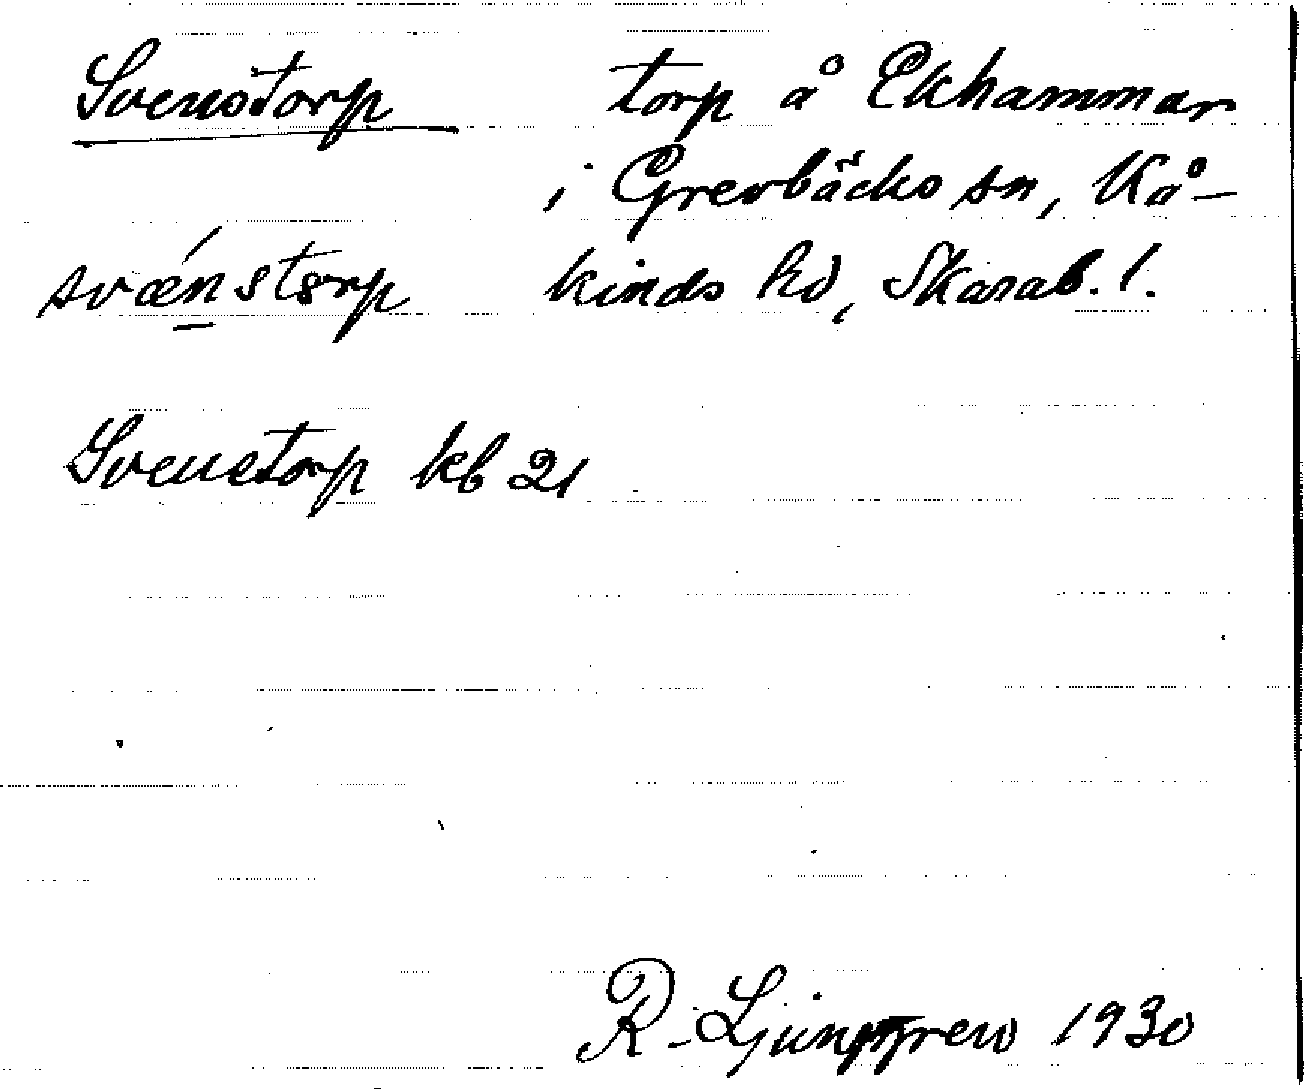 Svenstorp torp å Ekhammar
i Grevbäcks sn, Kå-
svænstorp kinds hd, Skarab. l.
Svenstorp kb 21
R. Ljunggren 1930